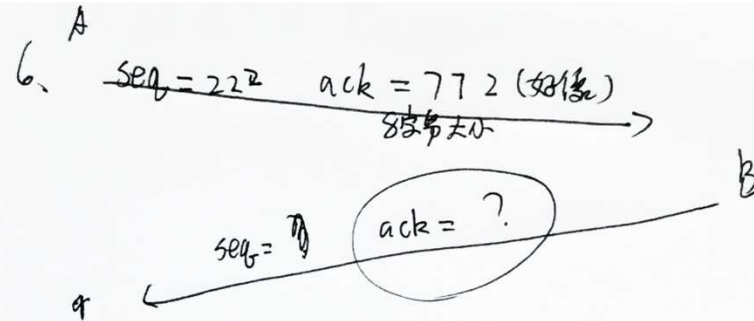 A
6、 seq = 222 ack = 772 (好像)
8字节大小
B
seq = ack = ?